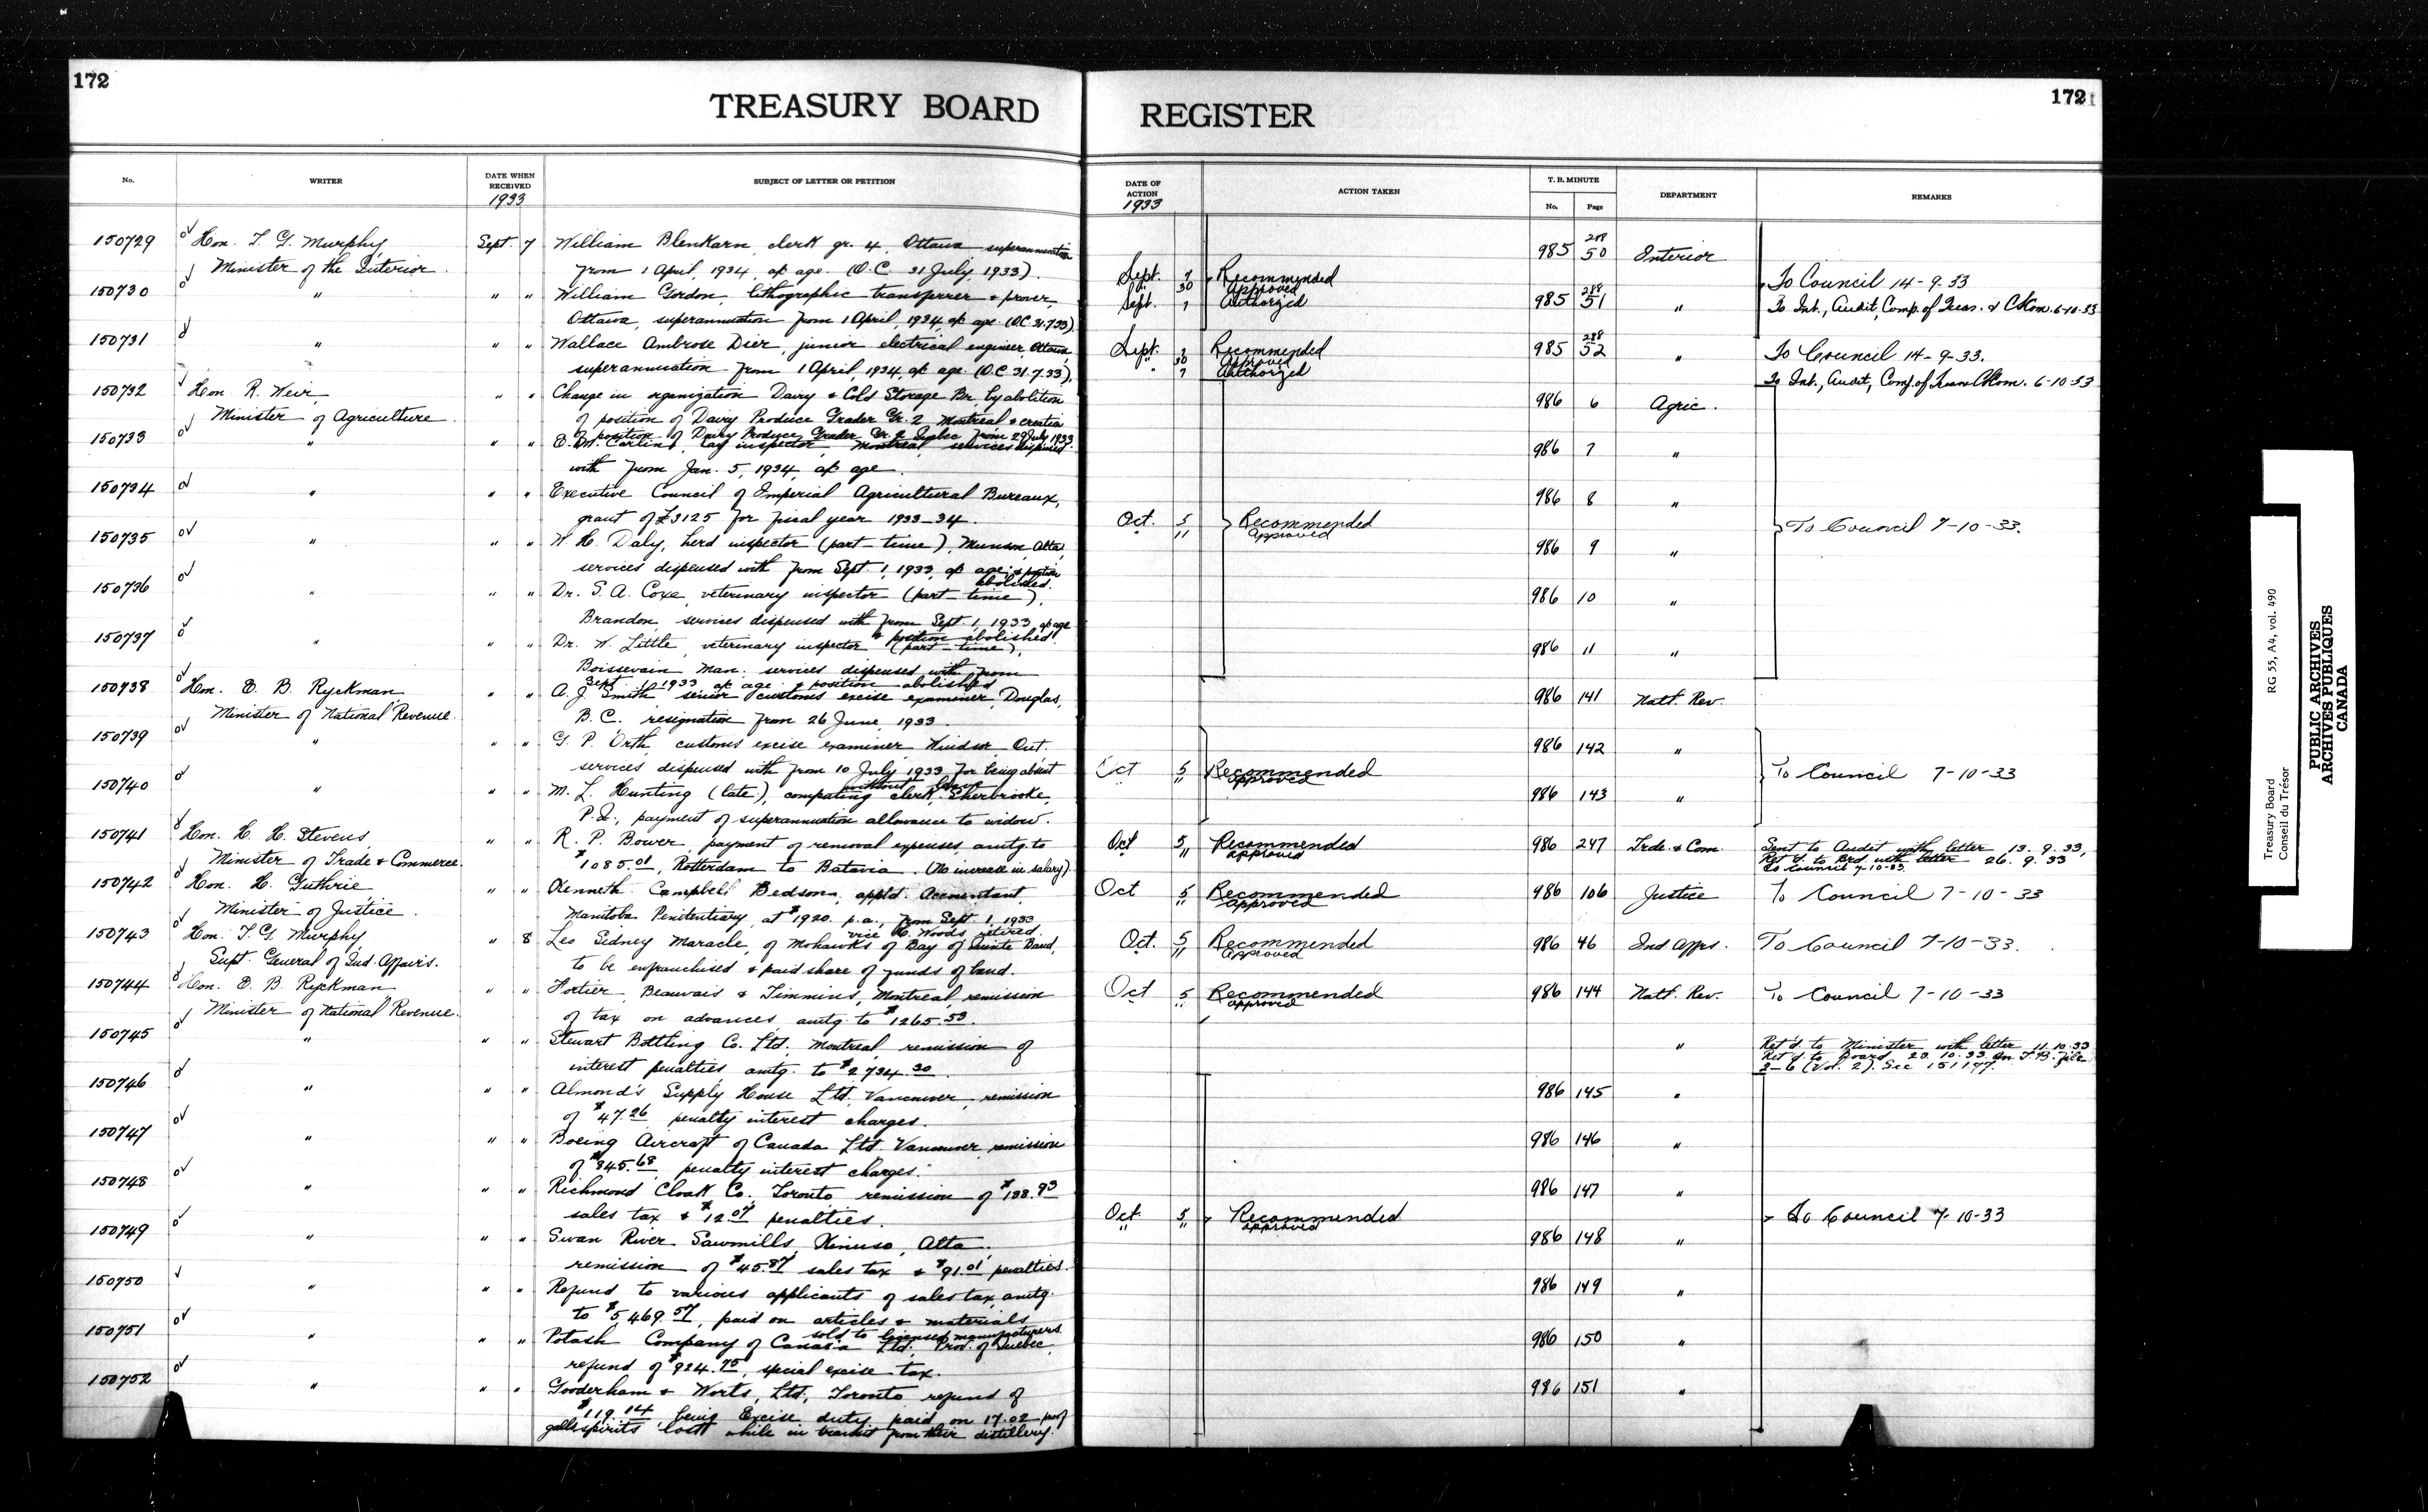 172
TREASURY BOARD REGISTER
172
No. WRITER DATE WHEN RECEIVED 1933 SUBJECT OF LETTER OR PETITION DATE OF ACTION 1933 ACTION TAKEN T. B. MINUTE No. Page DEPARTMENT REMARKS
150729 Hon. T. G. Murphy Sept. 7 William Blenkarn, clerk gr. 4, Ottawa superannuation 985 288 50 Interior
Minister of the Interior from 1 April, 1934, ac age. (O.C. 31 July, 1933). Sept. 7 Recommended To Council 14-9-33
30 Approved
150730 " " " William Gordon, lithographic transferrer & prover Sept. 7 Authorized 985 288 51 " To Int., Audit, Comp. of Treas. & C.S.Com. 6-10-33
Ottawa, superannuation from 1 April, 1934, ac age (O.C. 31.7.33)
150731 " " " Wallace Ambrose Dier, junior electrical engineer Ottawa, Sept. 7 Recommended 985 288 52 " To Council 14-9-33.
30 Approved
superannuation from 1 April, 1934, ac age. (O.C. 31.7.33). " 7 Authorized To Int., Audit, Comp. of Treas. 6-10-33
150732 Hon. R. Weir, " " Change in organization Dairy & Cold Storage Br. by abolition 986 6 Agric.
Minister of Agriculture of position of Dairy Produce Grader Gr. 2 Montreal & creation
of position of Dairy Produce Grader Gr. 2 Quebec from 29 July 1933
150733 " " " E. M. Carlin, lay inspector, Montreal services dispensed 986 7 "
with from Jan. 5, 1934, ac age.
150734 " " " Executive Council of Imperial Agricultural Bureaux, 986 8 "
grant of £3125 for fiscal year 1933-34. Oct. 5 Recommended To Council 7-10-33.
" 11 Approved
150735 " " " W. H. Daly, herd inspector (part-time), Munson, Alta, 986 9 "
services dispensed with from Sept. 1, 1933, ac age & position
abolished.
150736 " " " Dr. S. A. Coxe, veterinary inspector (part-time), 986 10 "
Brandon, services dispensed with from Sept. 1, 1933 ac age
& position abolished.
150737 " " " Dr. W. Little, veterinary inspector (part-time), 986 11 "
Boissevain Man. services dispensed with from
Sept. 1, 1933 ac age & position abolished
150738 Hon. E. B. Ryckman " " A. J. Smith, senior customs excise examiner, Douglas, 986 141 Natl. Rev.
Minister of National Revenue. B. C. resignation from 26 June, 1933.
150739 " " " G. P. Orth, customs excise examiner Windsor Ont. 986 142 "
services dispensed with from 10 July 1933 for being absent Oct 5 Recommended To Council 7-10-33
without leave " 11 Approved
150740 " " " M. L. Hunting (late), computing clerk, Sherbrooke, 986 143 "
P.Q., payment of superannuation allowance to widow.
150741 Hon. H. H. Stevens, " " R. P. Bower, payment of removal expenses amtg. to Oct 5 Recommended 986 247 Trde. & Com. Sent to Audit with letter 13. 9. 33,
11 approved
Minister of Trade & Commerce. $1085.01, Rotterdam to Batavia. (No increase in salary) Ret'd. to Brd. with letter 26. 9. 33
To Council 7-10-33
150742 Hon. H. Guthrie " " Kenneth Campbell Bedson, apptd. Accountant, Oct 5 Recommended 986 106 Justice To Council 7-10-33
" 11 approved
Minister of Justice. Manitoba Penitentiary, at $1920. p.a., from Sept. 1, 1933
vice H. Woods retired.
150743 Hon. T. G. Murphy " 8 Leo Sidney Maracle, of Mohawks of Bay of Quinte Band, Oct. 5 Recommended 986 46 Ind Affrs. To Council 7-10-33.
" 11 Approved
Supt. General of Ind. Affairs. to be enfranchised & paid share of funds of band.
150744 Hon. E. B. Ryckman " " Fortier, Beauvais & Timmins, Montreal, remission Oct 5 Recommended 986 144 Natl. Rev. To Council 7-10-33
" 11 approved
Minister of National Revenue. of tax on advances, amtg. to $1265.53.
150745 " " " Stewart Bottling Co. Ltd., Montreal, remission of " Ret'd. to Minister with letter 11.10.33
interest penalties amtg. to $2,734.30. Ret'd. to Board 23.10.33 on T.B. file
2-6 (Vol. 2). See 151197.
150746 " " " Almond's Supply House Ltd., Vancouver, remission 986 145 "
of $47.26 penalty interest charges.
150747 " " " Boeing Aircraft of Canada Ltd. Vancouver, remission 986 146 "
of $845.68 penalty interest charges.
150748 " " " Richmond Cloak Co., Toronto remission of $188.93 986 147 "
sales tax & $12.07 penalties. Oct. 5 Recommended To Council 7-10-33
" 11 approved
150749 " " " Swan River Sawmills, Kinuso, Alta, 986 148 "
remission of $45.87 sales tax & $91.01 penalties.
150750 " " " Refund to various applicants of sales tax, amtg. 986 149 "
to $5,469.57, paid on articles & materials
sold to licensed manufacturers
150751 " " " Potash Company of Canada Ltd., Prov. of Quebec, 986 150 "
refund of $924.75, special excise tax.
150752 " " " Gooderham & Worts, Ltd., Toronto refund of 986 151 "
$119.14, being Excise duty paid on 17.02 proof
galls spirits lost while in transit from their distillery.
Treasury Board RG 55, A4, vol. 490
Conseil du Trésor
PUBLIC ARCHIVES
ARCHIVES PUBLIQUES
CANADA